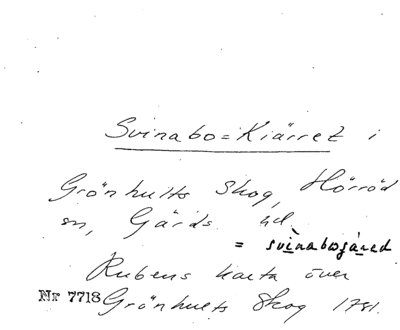 Svinabo=Kiärret i
Grönhults Skog, Hörröd
sn, Gärds hd.
= svinabosjäred
Rubens karta över
Nr 7718 Grönhults Skog 1781.